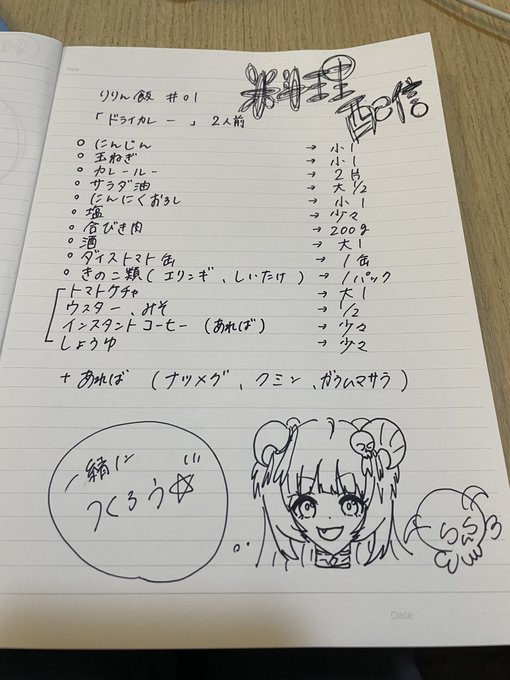 Title
料理
配信
りりん飯 #01
「ドライカレー」 2人前
○ にんじん → 小1
○ 玉ねぎ → 小1
○ カレールー → 2片
○ サラダ油 → 大1/2
○ にんにくおろし → 小1
○ 塩 → 少々
○ 合びき肉 → 200g
○ 酒 → 大1
○ ダイストマト缶 → 1缶
○ きのこ類(エリンギ、しいたけ) → 1パック
トマトケチャ → 大1
ウスター、みそ → 1/2
インスタントコーヒー (あれば) → 少々
しょうゆ → 少々
+ あれば (ナツメグ、クミン、ガラムマサラ)
一緒に
つくろう☆
Date